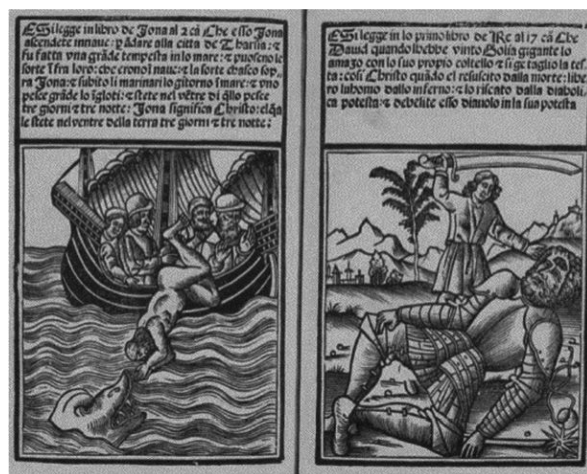 ESi legge in libro di Jona al 2 cã Che esso Jona
ascendete innaue: p ãdare alla citta de Tharsia: ⁊
fu fatta vna grãde tempesta in lo mare: ⁊ puoseno le
sorte ĩ fra loro: che erono ĩ naue: ⁊ la sorte chasco sop
ra Jona: ⁊ subito li marinari lo gitorno ĩ mare: ⁊ vno
pesce grãde lo ĩgloti: ⁊ stete nel vẽtre di q̃llo pesce
tre giorni ⁊ tre notte: Jona significa Christo: elq̃a
le stete nel ventre della terra tre giorni ⁊ tre notte:
ESi legge in lo primo libro de Re al 17 cã Che
Dauid quando hebbe vinto Golia gigante lo
amazo con lo suo propio coltello ⁊ si ge taglio la tes
ta: cosi Christo quãdo el resuscito dalla morte: libe
ro luhomo dallo inferno: ⁊ lo riscato dalla diaboli
ca potesta: ⁊ debelite esso diauolo in la sua potesta